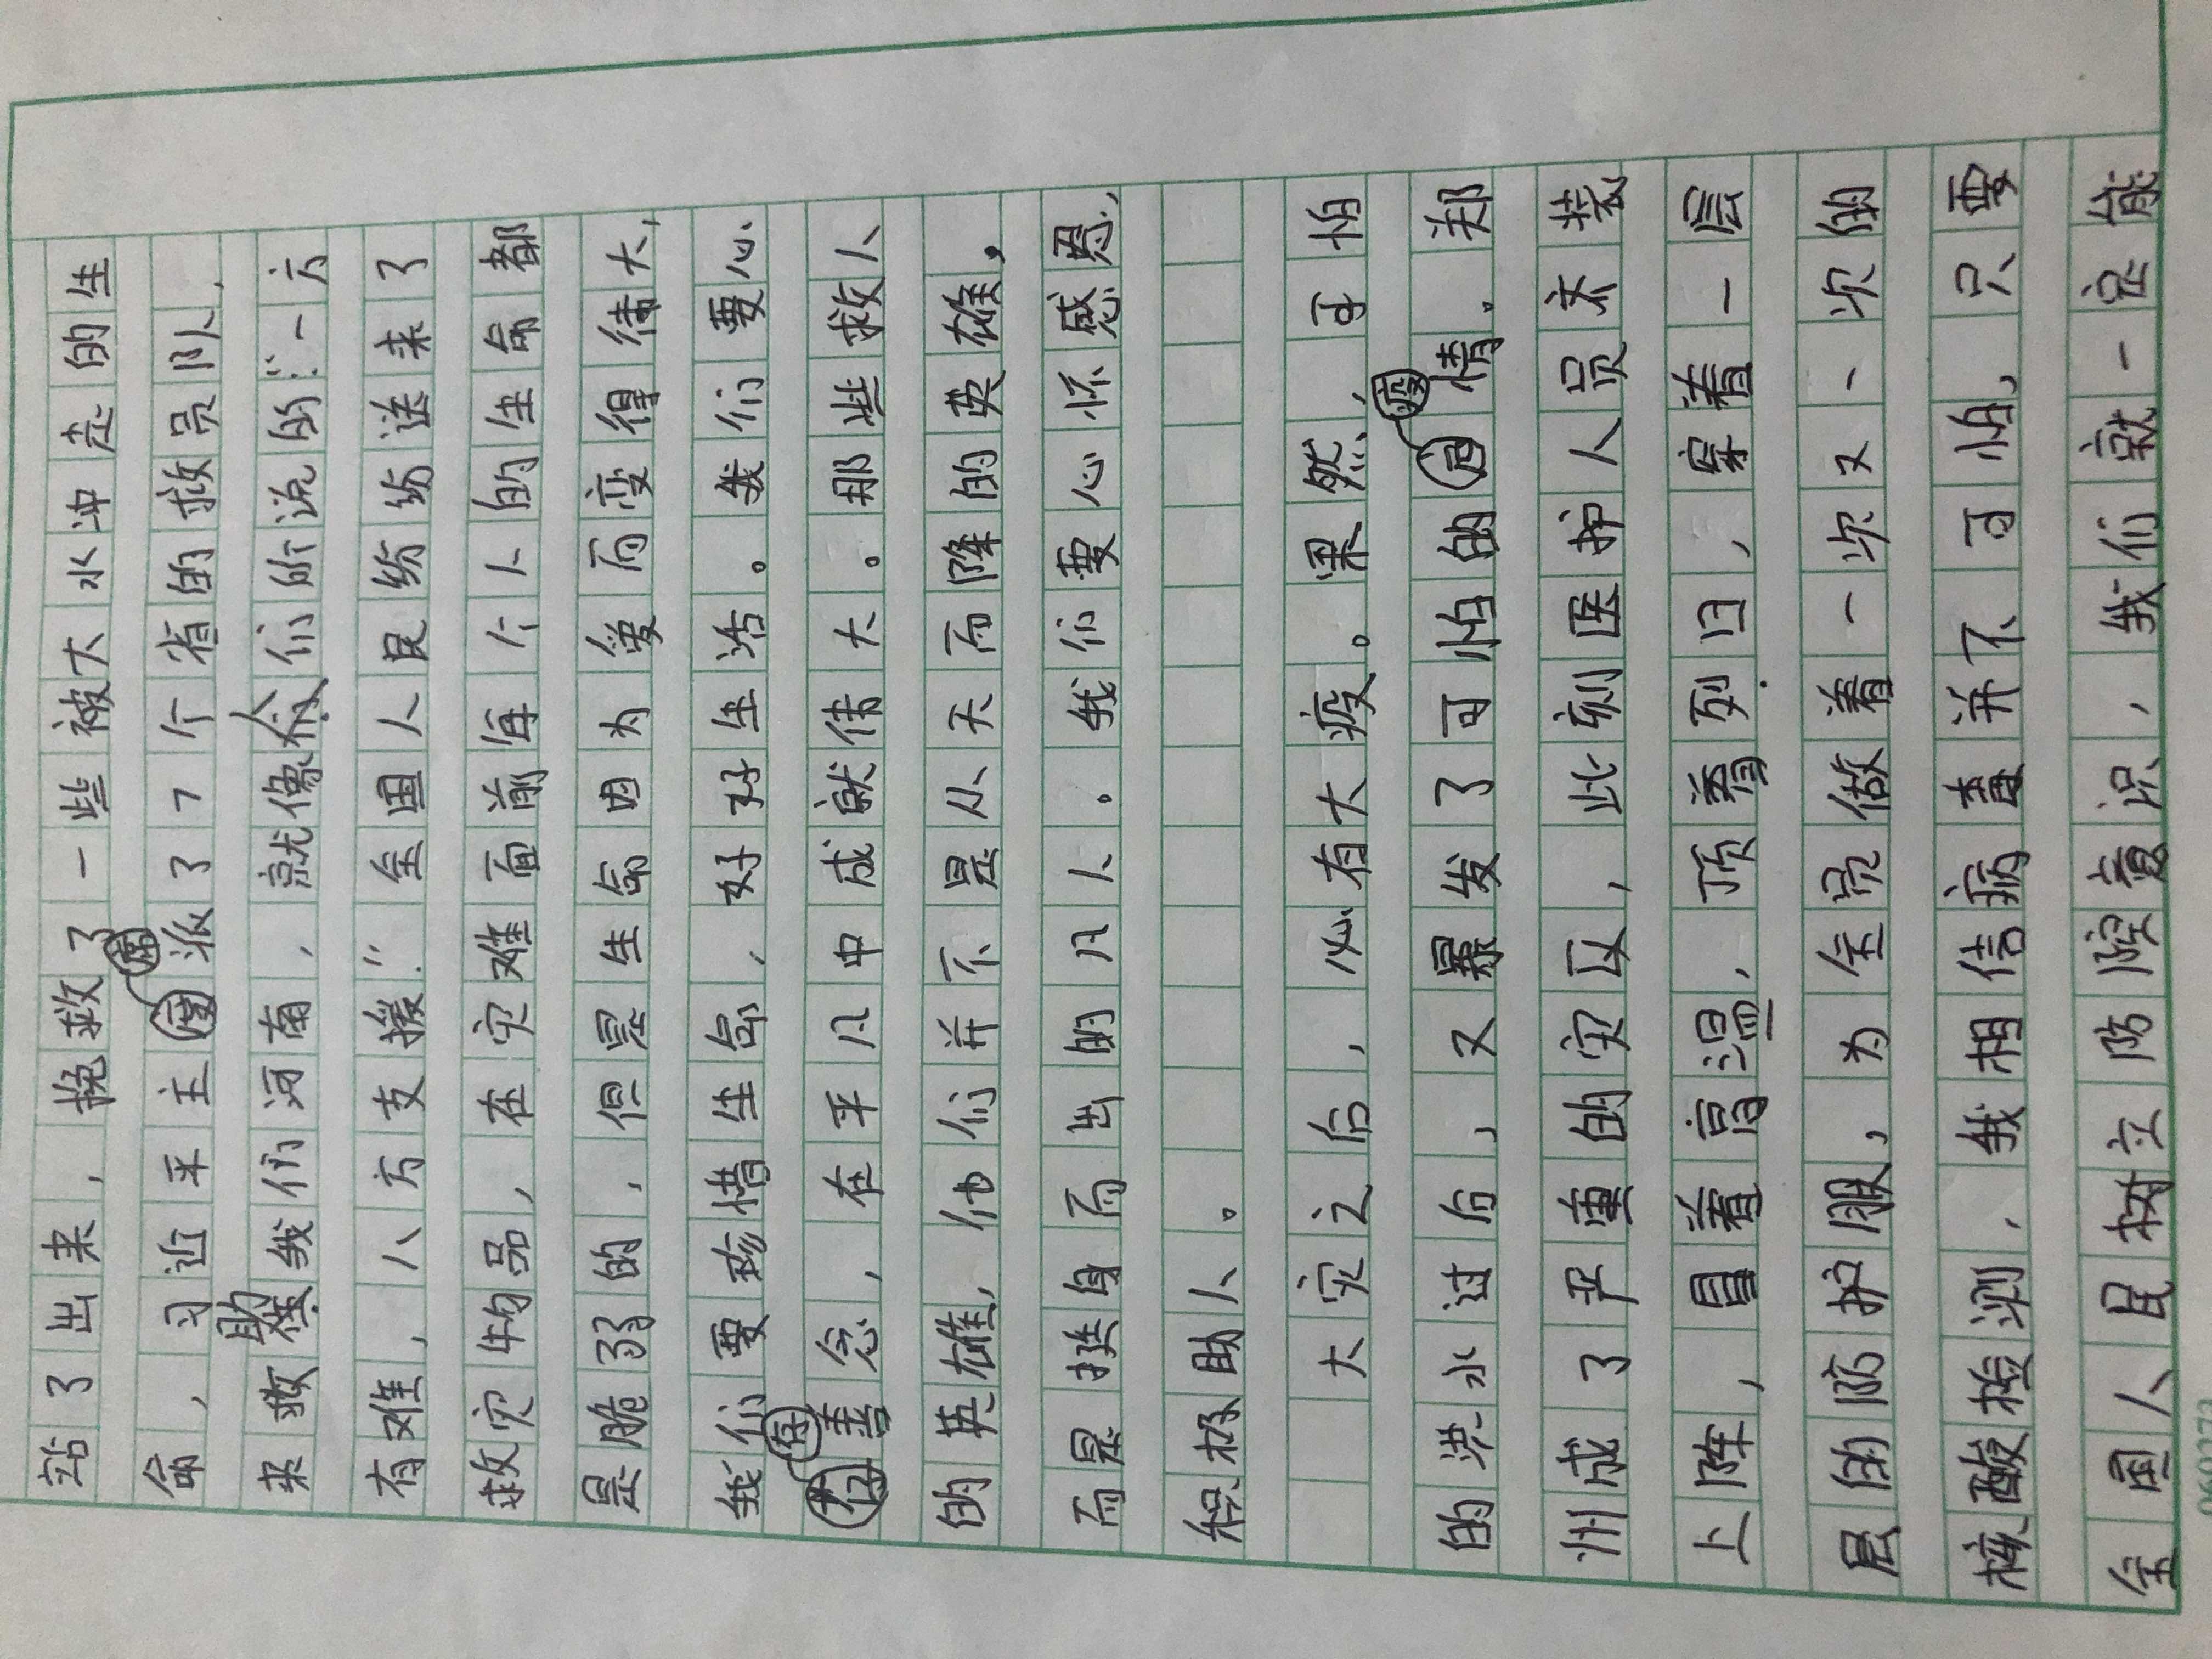 站了出来，挽救了一些被大水冲走的生
命，习近平主席派了7个省的救员队，
来救助我们河南，就像人们所说的：“一方
有难，八方支援.”全国人民纷纷送来了
救灾物品，在灾难面前每个人的生命都
是脆弱的，但是生命因为爱而变得伟大，
我们要珍惜生命，好好生活。我们要心
存善念，在平凡中成就伟大。那些救人
的英雄，他们并不是从天而降的英雄，
而是挺身而出的凡人。我们要心怀感恩，
积极助人。
大灾之后，必有大疫。果然，可怕
的洪水过后，又暴发了可怕的疫情。郑
州成了严重的灾区，此刻医护人员齐装
上阵，冒着高温，顶着烈日，穿着一层
层的防护服，为全员做着一次又一次的
核酸检测，我相信病毒并不可怕，只要
全国人民树立防控意识，我们就一定能